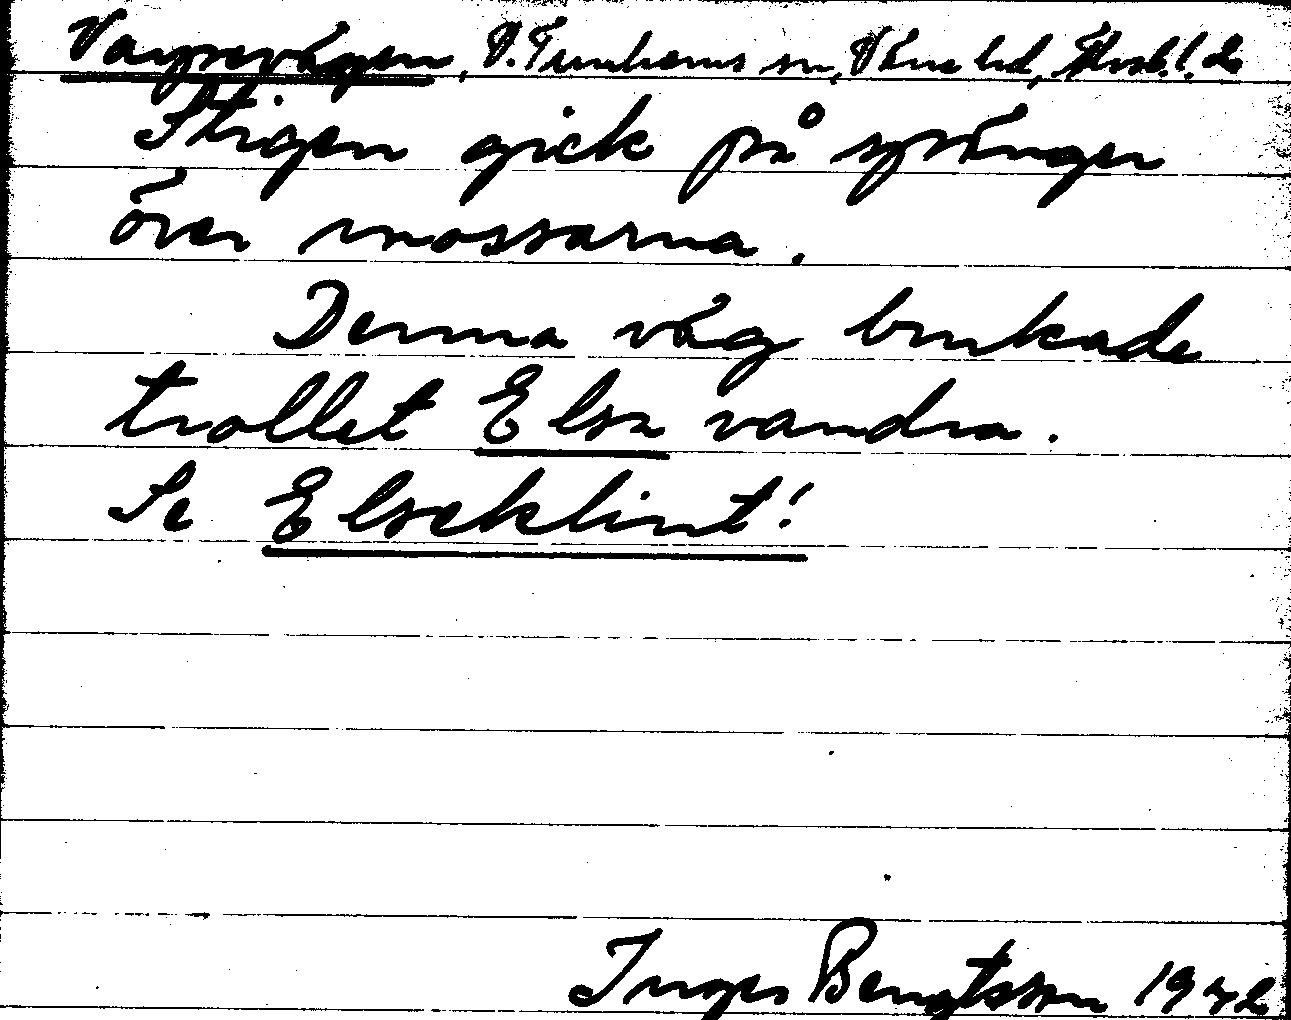 Vargevägen, V. Tunhems sn, Väne hd, Älvsb. l.
Stigen gick på spänger
över mossarna.
Denna väg brukade
trollet Elsa vandra.
Se Elseklint!
Inger Bengtsson 1942